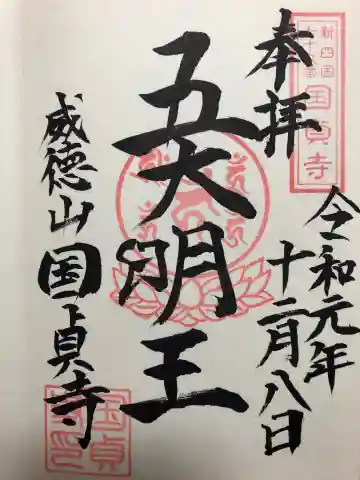 新四国
七十八番
国貞寺
奉拝
令和元年
十二月八日
五大明王
威徳山国上貞寺
国貞
寺印